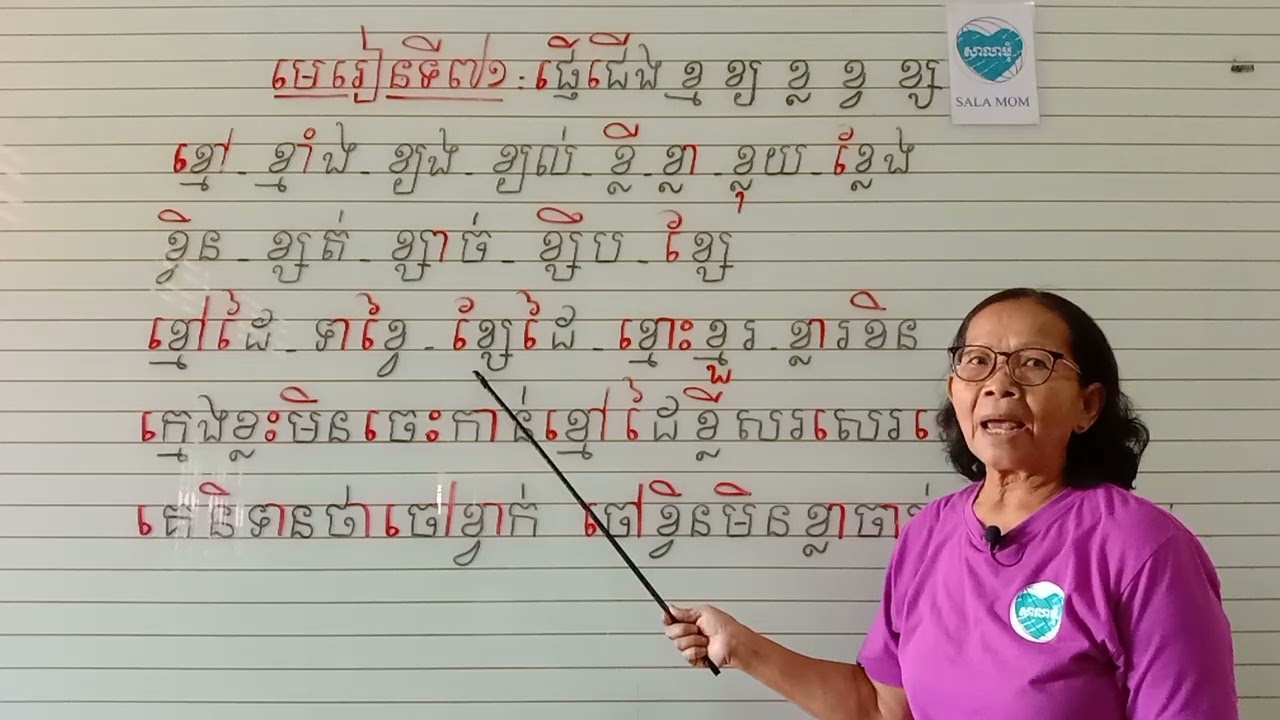 មេរៀនទី៧១ : ផ្ញើជើង ខ្ម ខ្យ ខ្ល ខ្វ ខ្ស
សាលាមុំ
SALA MOM
ខ្មៅ - ខ្មាំង - ខ្យង - ខ្យល់ - ខ្លី - ខ្លា - ខ្លុយ - ខ្លែង
ខ្វិន - ខ្សត់ - ខ្សាច់ - ខ្សឹប - ខ្សែ
ខ្មៅដៃ - ទាខ្វែ - ខ្សែដៃ - ខ្មោះខ្មួរ - ខ្លារខិន
ក្មេងខ្លះមិនចេះកាន់ខ្មៅដៃខ្លីសរសេរ
គេនិទានថាចៅខ្វាក់ ចៅខ្វិនមិនខ្លាច
សាលាមុំ